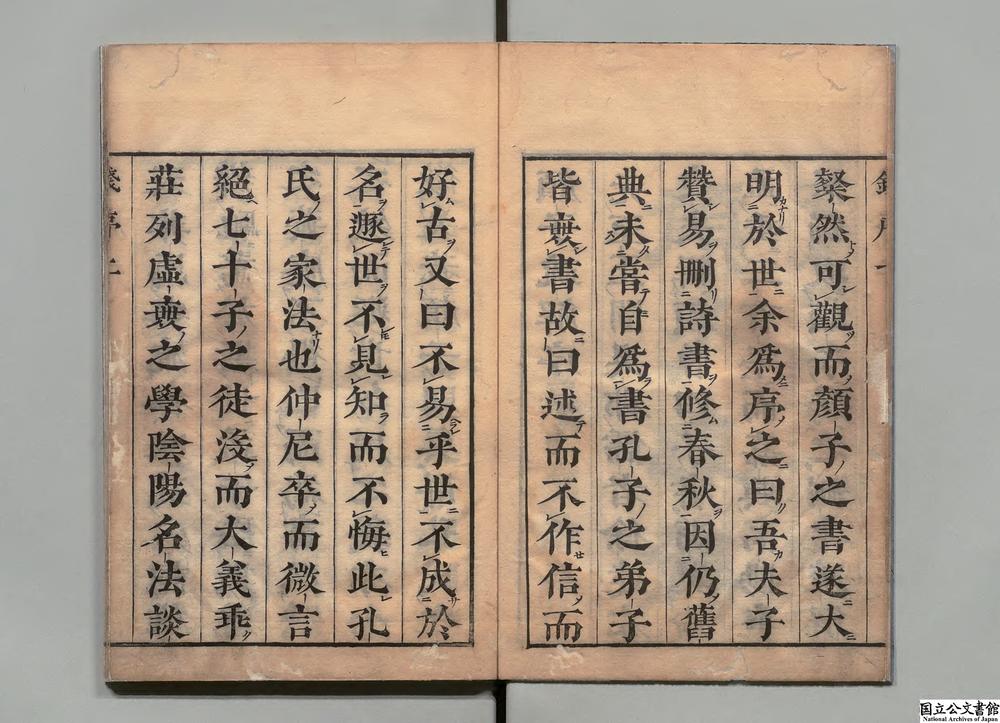 粲然可觀而顏子之書遂大
明於世余爲序之曰吾夫子
贊易删詩書修春秋因仍舊
典未嘗自爲書孔子之弟子
皆無書故曰述而不作信而
好古又曰不易乎世不成於
名遯世不見知而不悔此孔
氏之家法也仲尼卒而微言
絕七十子之徒沒而大義乖
莊列虛無之學陰陽名法談
国立公文書館
National Archives of Japan